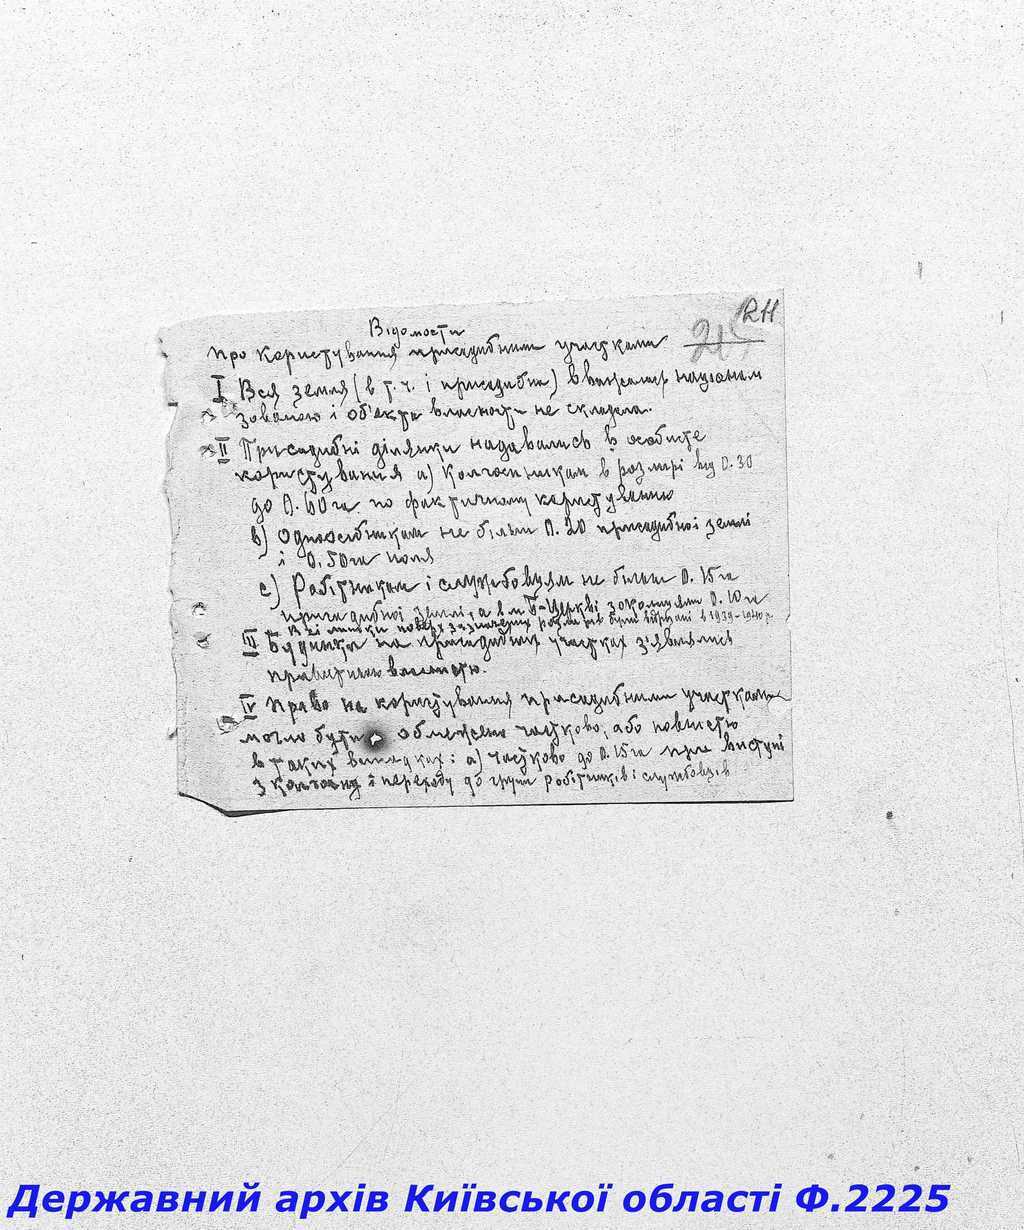 211
215
Відомости
про користування присадибними участками
I Вся земля (в т. ч. і присадибна) вважалась націонали
зованою і об'єкта власности не складала.
II Присадибні ділянки надавались в особисте
користування а) Колгоспникам в розмірі від 0.30
до 0.60 га по фактичному користуванню
в) Одноосібникам не більш 0.20 присадибної землі
і 0,50 га поля
с) Робітникам і службовцям не більш 0.15 га
присадибної землі, а в м. Б-Церкві з околицями 0.10 га
Всі лишки поверх зазначених розмірів були відрізані в 1939-1940 р.
III Будинки на присадибних участках з'являлись
приватною власністю.
IV Право на користування присадибними участками
могло бути обмежено частково, або повністю
в таких випадках: а) частково до 0.15 га при виступі
з колгоспу і переходу до групи робітників і службовців
Державний архів Київської області Ф.2225